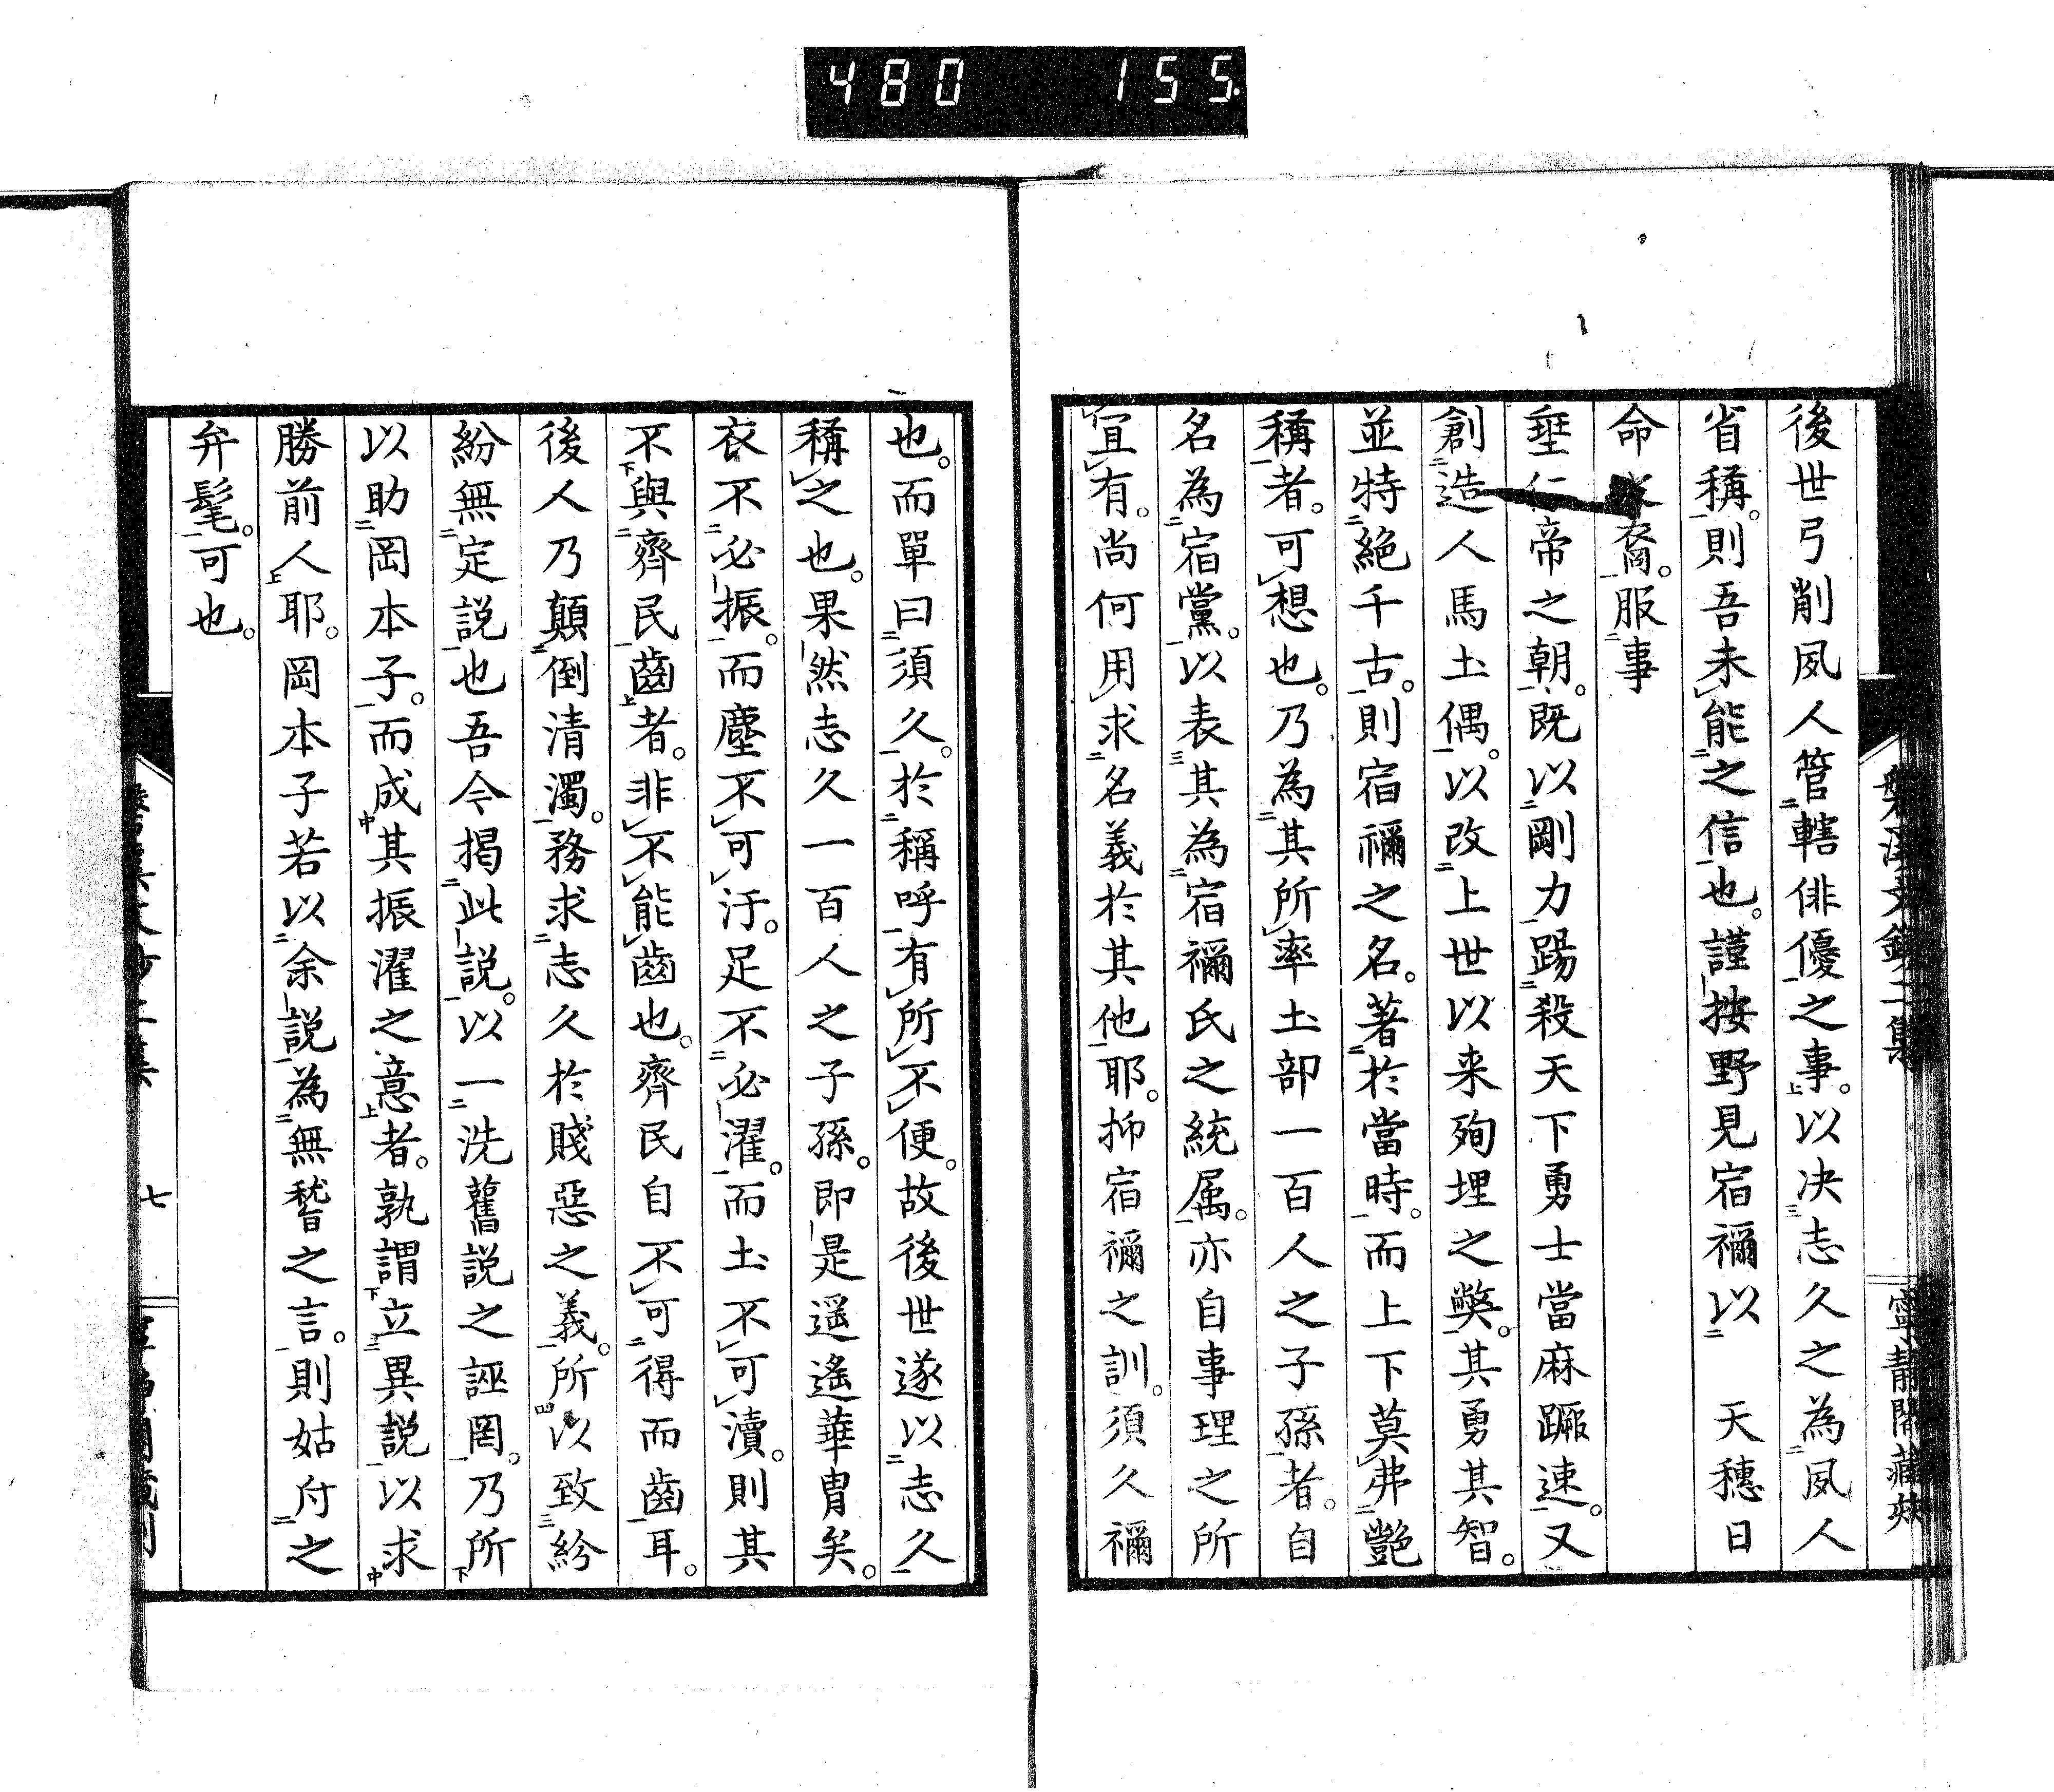 480 155
後世弓削夙人管轄俳優之事。以决志久之為夙人
省稱。則吾未能之信也。謹按野見宿禰以 天穗日
命 裔。服事
垂仁帝之朝。既以剛力踢殺天下勇士當麻蹶速。又
創造人馬土偶。以改上世以来殉埋之獘。其勇其智。
並特絕千古。則宿禰之名。著於當時。而上下莫弗豔
稱者。可想也。乃為其所率土部一百人之子孫者。自
名為宿黨。以表其為宿禰氏之統属。亦自事理之所
宜有。尚何用求名義於其他耶。抑宿禰之訓。須久禰
也。而單曰須久。於稱呼有所不便。故後世遂以志久
稱之也。果然志久一百人之子孫。即是遥遙華胄矣。
衣不必振。而塵不可汙。足不必濯。而土不可瀆。則其
不與齊民齒者。非不能齒也。齊民自不可得而齒耳。
後人乃顛倒清濁。務求志久於賤惡之義。所以致紛
紛無定説也吾今揭此説。以一洗舊説之誣罔。乃所
以助岡本子。而成其振濯之意者。孰謂立異説以求
勝前人耶。岡本子若以余説為無稽之言。則姑付之
弁髦。可也。
七